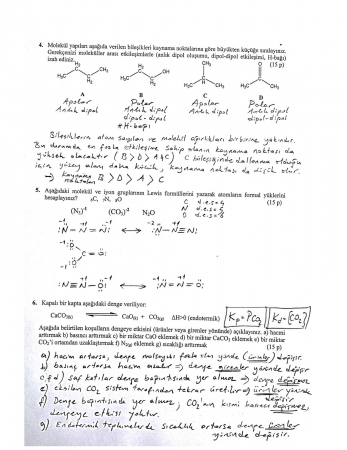 4. Molekül yapıları aşağıda verilen bileşikleri kaynama noktalarına göre büyükten küçüğe sıralayınız.
Gerekçenizi moleküller arası etkileşimlerle (anlık dipol oluşumu, dipol-dipol etkileşimi, H-bağı)
izah ediniz. (15 p)
A B C D
Apolar Polar Apolar Polar
Anlık dipol Anlık dipol Anlık dipol Anlık dipol
dipol-dipol dipol-dipol
H-bağı
Bileşiklerin atom sayıları ve molekül ağırlıkları birbirine yakındır.
Bu durumda en fazla etkileşime sahip olanın kaynama noktası da
yüksek olacaktır (B > D > A C) C bileşiğinde dallanma olduğu
için yüzey alanı daha küçük, kaynama noktası da düşük olur.
→ kaynama noktaları B > D > A > C
5. Aşağıdaki molekül ve iyon gruplarının Lewis formüllerini yazarak atomların formal yüklerini
hesaplayınız? ₆C, ₇N, ₈O (15 p)
(N₃)⁻¹ (CO₃)⁻² N₂O
6. Kapalı bir kapta aşağıdaki denge veriliyor:
CaCO₃(k) CaO(k) + CO₂(g) ΔH>0 (endotermik)
Aşağıda belirtilen koşulların dengeye etkisini (ürünler veya girenler yönünde) açıklayınız. a) hacmi
artırmak b) basıncı artırmak c) bir miktar CaO eklemek d) bir miktar CaCO₃ eklemek e) bir miktar
CO₂'i ortamdan uzaklaştırmak f) N₂(g) eklemek g) sıcaklığı artırmak (15 p)
a) hacim artarsa, denge molsayısı fazla olan yönde (ürünler) değişir.
b) basınç artarsa hacim azalır ⇒ denge girenler yönünde değişir
c,d) saf katılar denge bağıntısında yer almaz ⇒ denge değişmez
e) eksilen CO₂ sistem tarafından tekrar üretilir ⇒ ürünler yönünde değişir
f) Denge bağıntısında yer almaz, CO₂'nin kısmi basıncı değişmez,
dengeye etkisi yoktur.
g) Endotermik tepkimelerde sıcaklık artarsa denge ürünler
yönünde değişir.